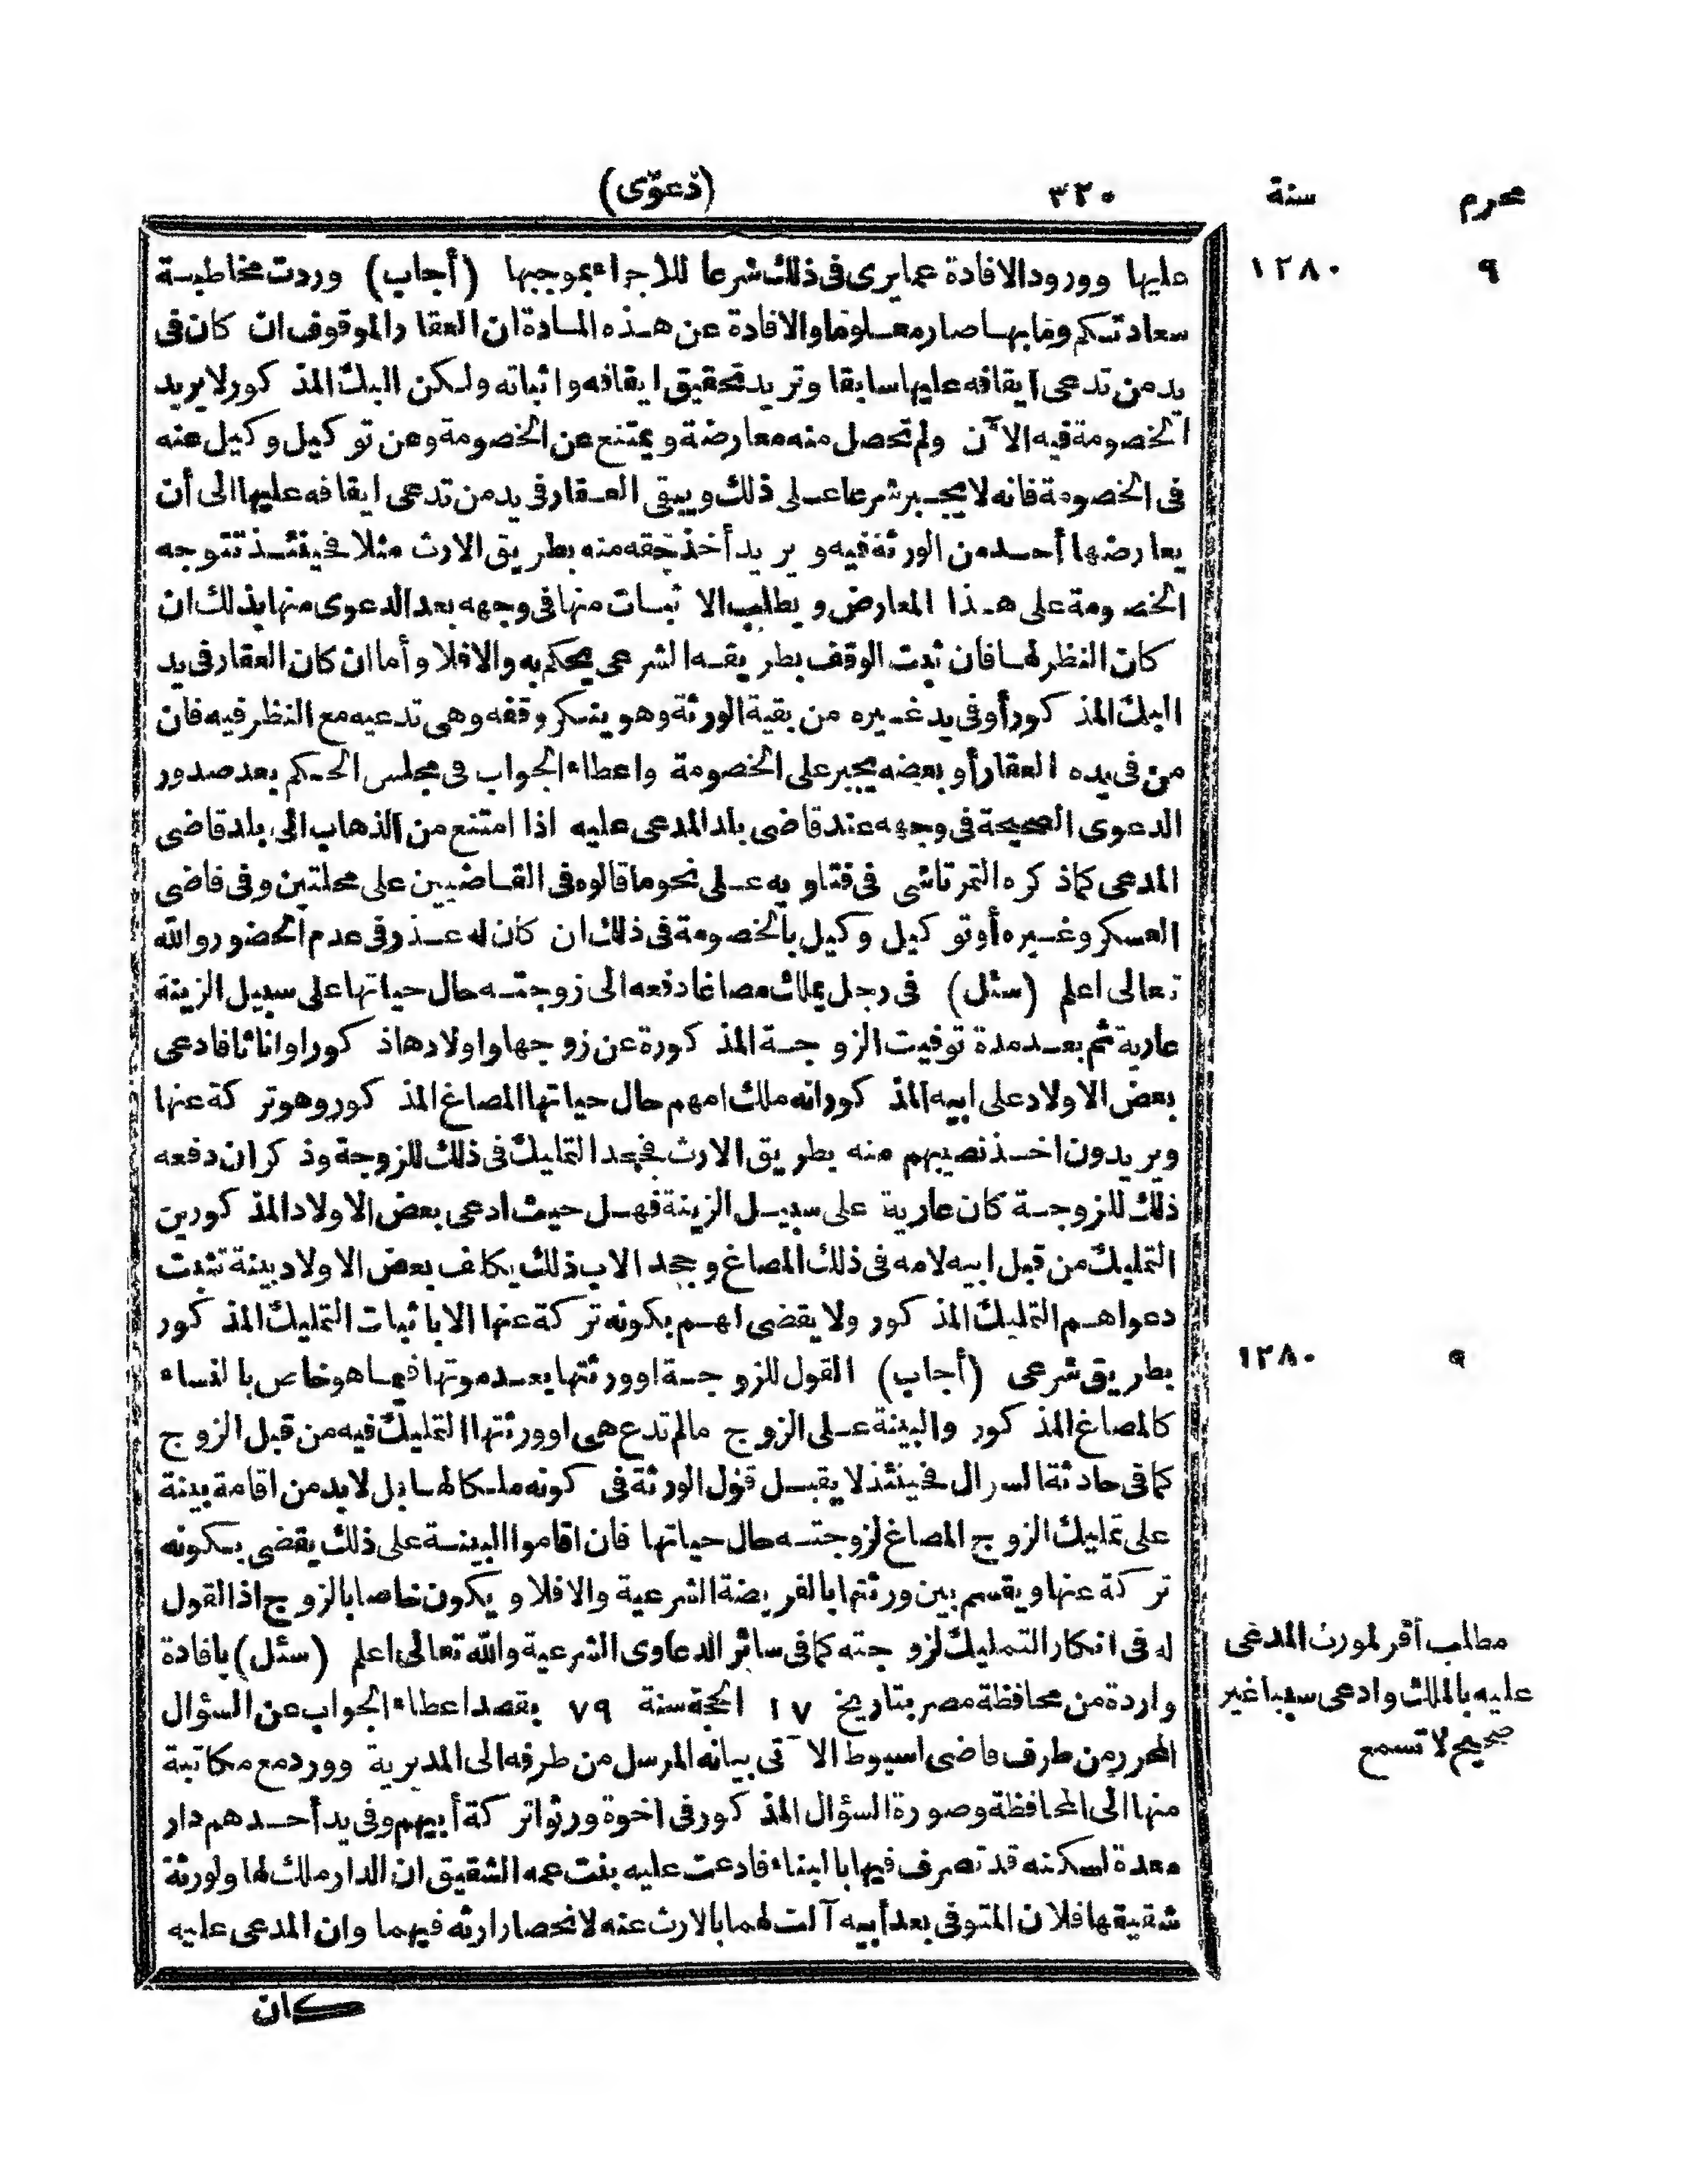 محرم سنة ٣٢٠ (دعوى)
٩ ١٢٨٠
عليها وورود الافادة عما يرى فى ذلك شرعا للاجراء بموجبها (أجاب) وردت مخاطبة
سعادتكم وما بها صار معلوما والافادة عن هذه المادة ان العقار الموقوف ان كان فى
يد من تدعى ايقافه عليها سابقا وتريد تحقيق ايقافه واثباته ولكن البك المذكور لا يريد
الخصومة فيه الآن ولم تحصل منه معارضة ويمتنع عن الخصومة وعن توكيل وكيل عنه
فى الخصومة فانه لا يجبر شرعا على ذلك ويبقى العقار فى يد من تدعى ايقافه عليها الى أن
يعارضها أحد من الورثة فيه ويريد أخذ حقه منه بطريق الارث مثلا فحينئذ تتوجه
الخصومة على هذا المعارض ويطلب الاثبات منها فى وجهه بعد الدعوى منها بذلك ان
كان النظر لها فان ثبت الوقف بطريقه الشرعى يحكم به والا فلا وأما ان كان العقار فى يد
البك المذكور أو فى يد غيره من بقية الورثة وهو ينكر وقفه وهى تدعيه مع النظر فيه فان
من فى يده العقار أو بعضه يجبر على الخصومة واعطاء الجواب فى مجلس الحكم بعد صدور
الدعوى الصحيحة فى وجهه عند قاضى بلد المدعى عليه اذا امتنع من الذهاب الى بلد قاضى
المدعى كما ذكره التمرتاشى فى فتاويه على نحو ما قالوه فى القاضيين على محلتين وفى قاضى
العسكر وغيره أو توكيل وكيل بالخصومة فى ذلك ان كان له عذر فى عدم الحضور والله
تعالى اعلم (سئل) فى رجل يملك مصاغا دفعه الى زوجته حال حياتها على سبيل الزينة
عارية ثم بعد مدة توفيت الزوجة المذكورة عن زوجها واولادها ذكورا واناثا فادعى
بعض الاولاد على ابيه المذكور انه ملك امهم حال حياتها المصاغ المذكور وهو تركة عنها
ويريدون اخذ نصيبهم منه بطريق الارث فجحد التمليك فى ذلك للزوجة وذكر ان دفعه
ذلك للزوجة كان عارية على سبيل الزينة فهل حيث ادعى بعض الاولاد المذكورين
التمليك من قبل ابيه لامه فى ذلك المصاغ وجحد الاب ذلك يكلف بعض الاولاد بينة تثبت
دعواهم التمليك المذكور ولا يقضى لهم بكونه تركة عنها الا باثبات التمليك المذكور
٩ ١٢٨٠
بطريق شرعى (أجاب) القول للزوجة او ورثتها بعد موتها فيما هو خاص بالنساء
كالمصاغ المذكور والبينة على الزوج ما لم تدع هى او ورثتها التمليك فيه من قبل الزوج
كما فى حادثة السؤال فحينئذ لا يقبل قول الورثة فى كونه ملكا لها بل لا بد من اقامة بينة
على تمليك الزوج المصاغ لزوجته حال حياتها فان اقاموا البينة على ذلك يقضى بكونه
تركة عنها ويقسم بين ورثتها بالفريضة الشرعية والا فلا ويكون خاصا بالزوج اذ القول
له فى انكار التمليك لزوجته كما فى سائر الدعاوى الشرعية والله تعالى اعلم (سئل) بافادة
واردة من محافظة مصر بتاريخ ١٧ الحجة سنة ٧٩ بقصد اعطاء الجواب عن السؤال
المحرر من طرف قاضى اسيوط الآتى بيانه المرسل من طرفه الى المديرية وورد مع مكاتبة
منها الى المحافظة وصورة السؤال المذكور فى اخوة ورثوا تركة أبيهم وفى يد أحدهم دار
معدة لسكنه قد تصرف فيها بالبناء فادعت عليه بنت عمه الشقيق ان الدار ملك لها ولورثة
شقيقها فلان المتوفى بعد أبيه آلت لهما بالارث عنه لانحصار ارثه فيهما وان المدعى عليه
مطلب أقر لمورث المدعى
عليه بالملك وادعى سببا غير
صحيح لا تسمع
كان